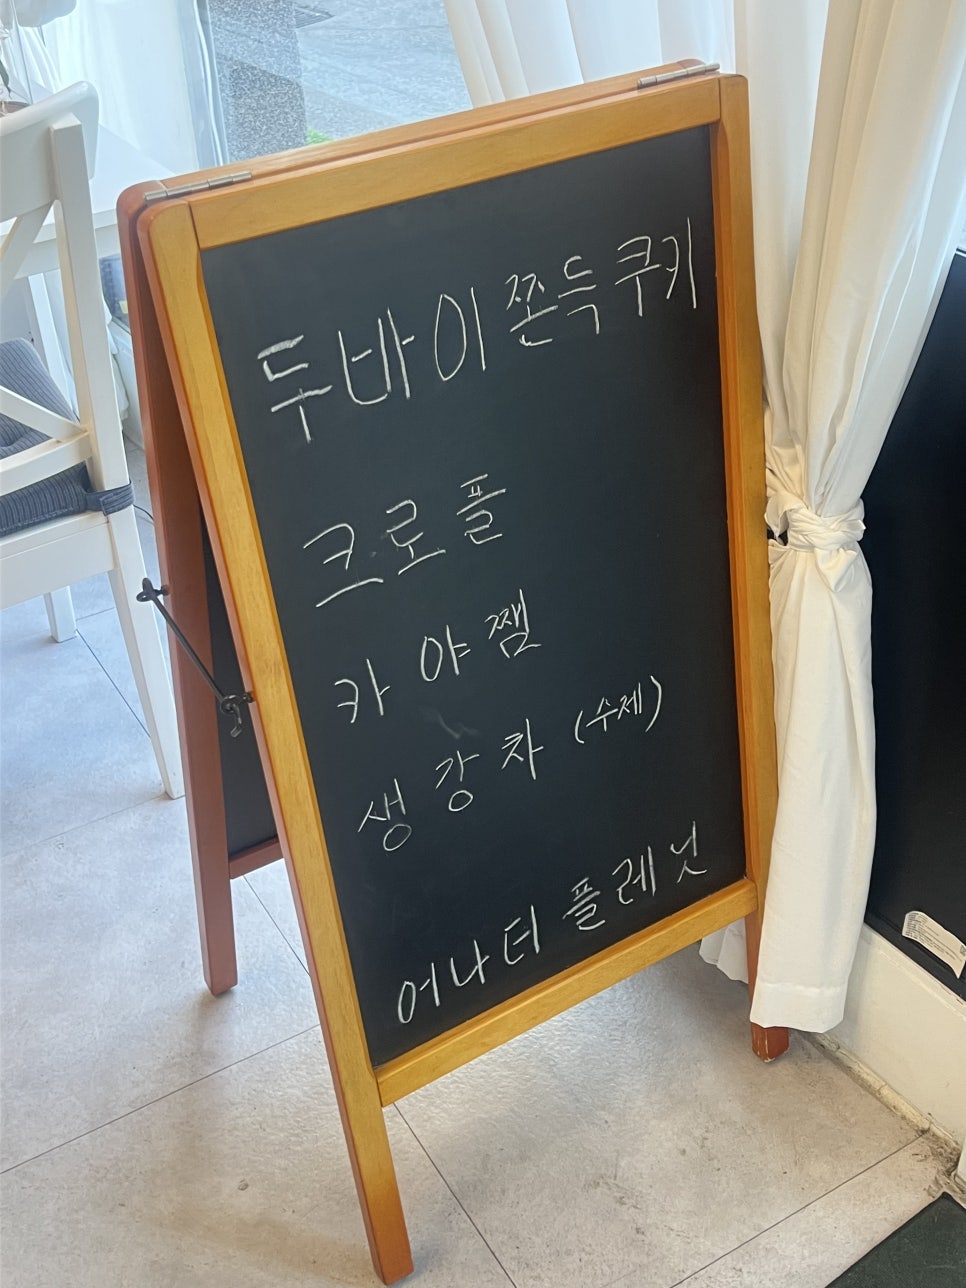 두바이 쫀득쿠키
크로플
카야쨈
생강차 (수제)
어나더 플레닛